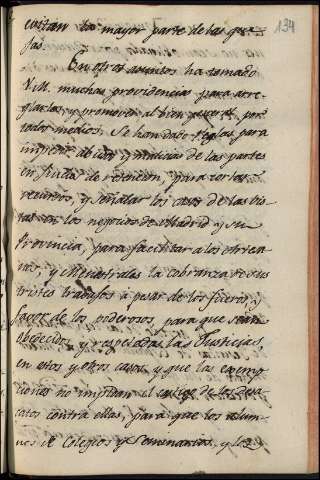 134
evitan la mayor parte de las que=
jas.
En otros asuntos ha tomado
V.M. muchas providencias para arre-
glarlos, y promover al bien por
todos medios. Se han dado reglas para
impedir abusos y malicias de las partes
en juicios de retencion, para cortar
recursos, y señalar los casos de las vis-
tas en los negocios de Madrid y su
Provincia, para facilitar a los
y Menestrales la cobranza de sus
tristes trabajos á pesar de los fueros, y
favor de los poderosos, para que sean
obedecidas y respetadas las Justicias,
en estos y otros casos, y que las exemp-
ciones no impidan el castigo de los desa-
catos contra ellas, para que los alum-
nos de Colegios y Seminarios, y los